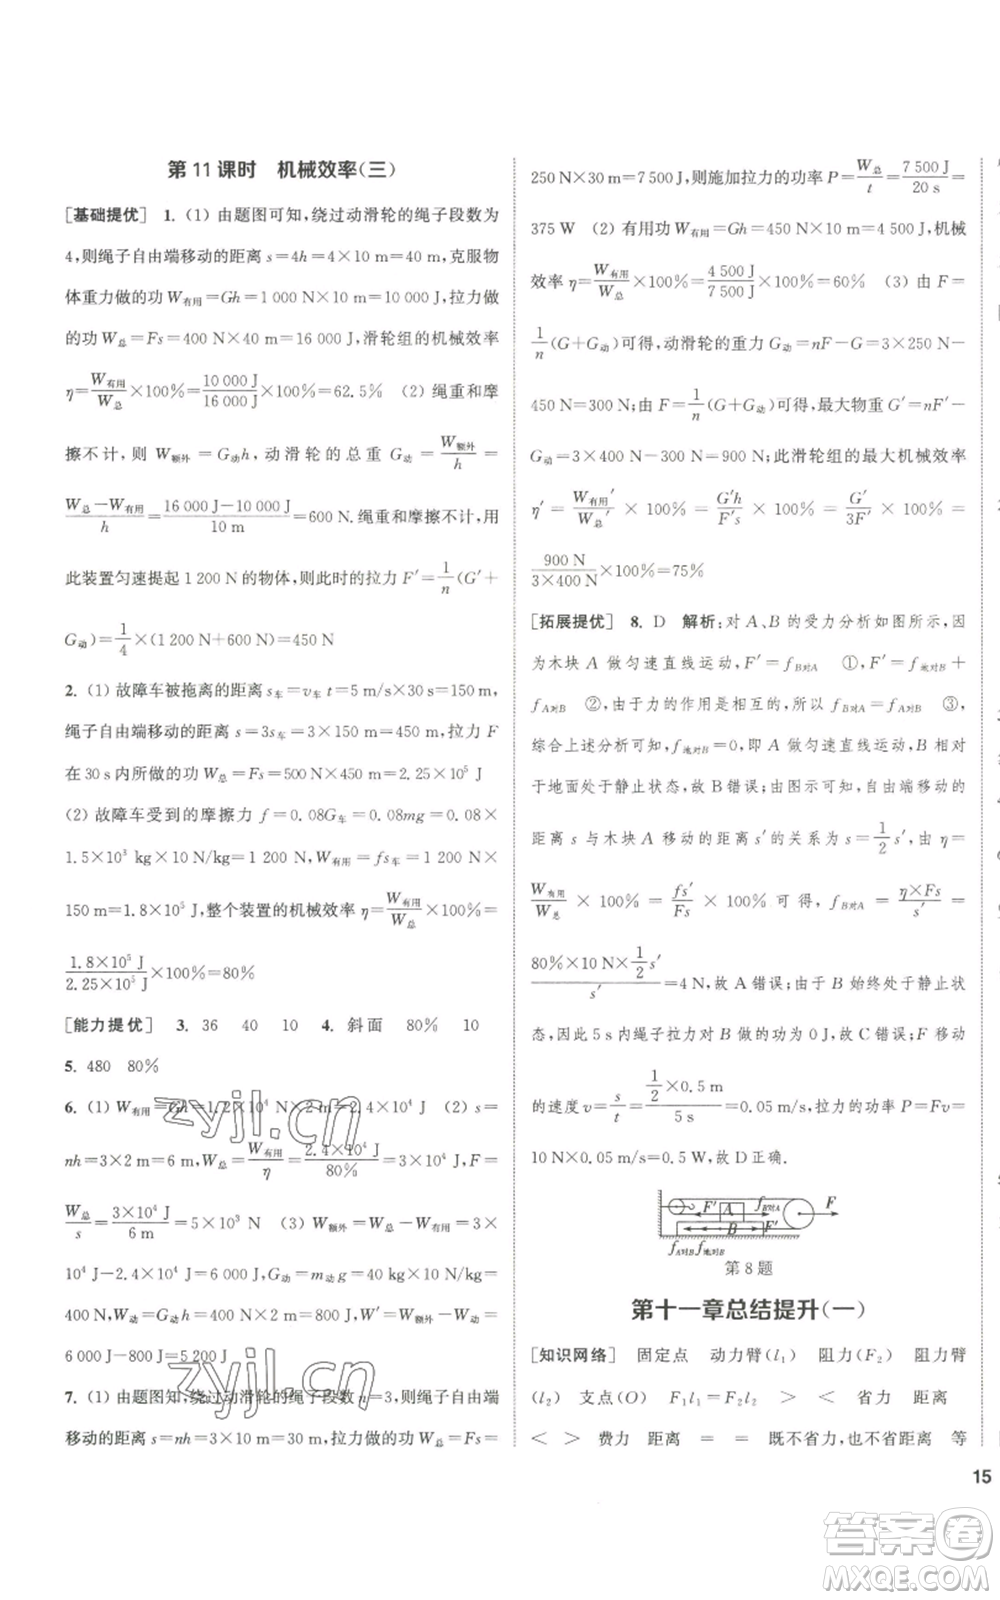 第 11 课时　机械效率(三)
[基础提优]　1. (1) 由题图可知,绕过动滑轮的绳子段数为
4,则绳子自由端移动的距离 s=4h=4×10 m=40 m,克服物
体重力做的功 W有用=Gh=1 000 N×10 m=10 000 J,拉力做
的功 W总=Fs=400 N×40 m=16 000 J,滑轮组的机械效率
η=W有用/W总×100%=10 000 J/16 000 J×100%=62.5%　(2) 绳重和摩
擦不计, 则 W额外=G动h, 动滑轮的总重 G动=W额外/h=
(W总-W有用)/h=(16 000 J-10 000 J)/10 m=600 N. 绳重和摩擦不计,用
此装置匀速提起 1 200 N 的物体,则此时的拉力 F'=1/n(G'+
G动)=1/4×(1 200 N+600 N)=450 N
2. (1) 故障车被拖离的距离 s车=v车 t=5 m/s×30 s=150 m,
绳子自由端移动的距离 s=3s车=3×150 m=450 m,拉力 F
在 30 s 内所做的功 W总=Fs=500 N×450 m=2.25×10⁵ J
(2) 故障车受到的摩擦力 f=0.08G车=0.08mg=0.08×
1.5×10³ kg×10 N/kg=1 200 N, W有用=fs车=1 200 N×
150 m=1.8×10⁵ J,整个装置的机械效率 η=W有用/W总×100%=
1.8×10⁵ J/2.25×10⁵ J×100%=80%
[能力提优]　3. 36　40　10　4. 斜面　80%　10
5. 480　80%
6. (1) W有用=Gh=1.2×10⁴ N×2 m=2.4×10⁴ J　(2) s=
nh=3×2 m=6 m, W总=W有用/η=2.4×10⁴ J/80%=3×10⁴ J, F=
W总/s=3×10⁴ J/6 m=5×10³ N　(3) W额外=W总-W有用=3×
10⁴ J-2.4×10⁴ J=6 000 J, G动=m动g=40 kg×10 N/kg=
400 N, W动=G动h=400 N×2 m=800 J, W'=W额外-W动=
6 000 J-800 J=5 200 J
7. (1) 由题图知,绕过动滑轮的绳子段数 n=3,则绳子自由端
移动的距离 s=nh=3×10 m=30 m,拉力做的功 W总=Fs=
250 N×30 m=7 500 J,则施加拉力的功率 P=W总/t=7 500 J/20 s=
375 W　(2) 有用功 W有用=Gh=450 N×10 m=4 500 J,机械
效率 η=W有用/W总×100%=4 500 J/7 500 J×100%=60%　(3) 由 F=
1/n(G+G动)可得,动滑轮的重力 G动=nF-G=3×250 N-
450 N=300 N;由 F=1/n(G+G动)可得,最大物重 G'=nF'-
G动=3×400 N-300 N=900 N;此滑轮组的最大机械效率
η'=W有用'/W总'×100%=G'h/F's×100%=G'/3F'×100%=
900 N/(3×400 N)×100%=75%
[拓展提优]　8. D　解析:对 A、B 的受力分析如图所示,因
为木块 A 做匀速直线运动, F'=fB对A　①, F'=f地对B+
fA对B　②,由于力的作用是相互的 fB对A=fA对B　③,
综合上述分析可知, f地对B=0,即 A 做匀速直线运动,B 相对
于地面处于静止状态,故 B 错误;由图可知,自由端移动的
距离 s 与木块 A 移动的距离 s'的关系为 s=1/2 s',由 η=
W有用/W总×100%=fs'/Fs×100%可得, fB对A=η×Fs/s'=
80%×10 N×1/2 s'/s'=4 N,故 A 错误;由于 B 始终处于静止状
态,因此 5 s 内绳子拉力对 B 做的功为 0 J,故 C 错误;F 移动
的速度 v=s/t=(1/2×0.5 m)/5 s=0.05 m/s,拉力的功率 P=Fv=
10 N×0.05 m/s=0.5 W,故 D 正确.
F' A fB对A F
B F'
fA对B f地对B
第 8 题
第十一章总结提升(一)
[知识网络]　固定点　动力臂(l₁)　阻力(F₂)　阻力臂
(l₂)　支点(O)　F₁l₁=F₂l₂　>　<　省力　距离
<　>　费力　距离　=　=　既不省力,也不省距离　等
15
zyjl.cn
zyjl.cn
答案圈
MXQE.COM